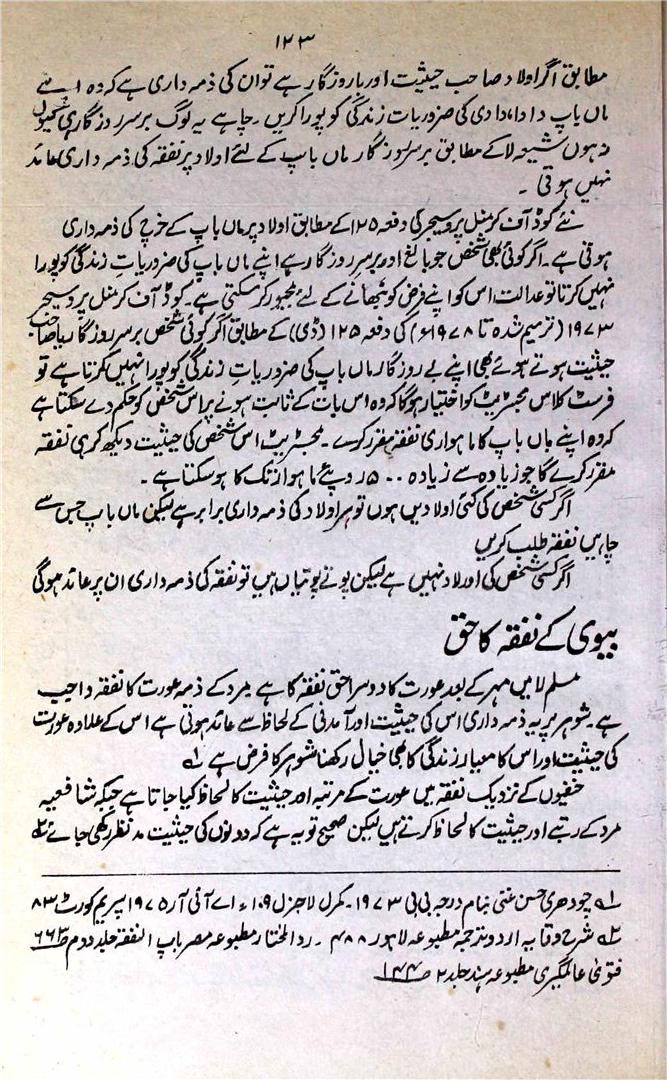 ۱۲۳
مطابق اگر اولاد صاحب حیثیت اور با روزگار ہے تو ان کی ذمہ داری ہے کہ وہ اپنے
ماں باپ دادا، دادی کی ضروریات زندگی کو پورا کریں۔ چاہے یہ لوگ برسر روزگار ہی کیوں
نہ ہوں شیعہ لا کے مطابق برسر روزگار ماں باپ کے لئے اولاد پر نفقہ کی ذمہ داری عائد
نہیں ہوتی ۔
نئے کوڈ آف کرمنل پروسیجر کی دفعہ ۱۲۵ کے مطابق اولاد پر ماں باپ کے خرچ کی ذمہ داری
ہوتی ہے۔ اگر کوئی بھی شخص جو بالغ اور برسر روزگار ہے اپنے ماں باپ کی ضروریات زندگی کو پورا
نہیں کرتا تو عدالت اس کو اپنے فرض کو نبھانے کے لئے مجبور کر سکتی ہے۔ کوڈ آف کرمنل پروسیجر
۱۹۷۳ (ترمیم شدہ تا ۱۹۷۸ء) کی دفعہ ۱۲۵ (ڈی) کے مطابق اگر کوئی شخص برسر روزگار یا صاحب
حیثیت ہوتے ہوئے بھی اپنے بے روزگار ماں باپ کی ضروریاتِ زندگی کو پورا نہیں کرتا ہے تو
فرسٹ کلاس مجسٹریٹ کو اختیار ہوگا کہ وہ اس بات کے ثابت ہونے پر اس شخص کو حکم دے سکتا ہے
کہ وہ اپنے ماں باپ کا ماہواری نفقہ مقرر کرے ۔ مجسٹریٹ اس شخص کی حیثیت دیکھ کر ہی نفقہ
مقرر کرے گا جو زیادہ سے زیادہ ۵۰۰ روپیئے ماہوار تک کا ہو سکتا ہے ۔
اگر کسی شخص کی کئی اولادیں ہوں تو ہر اولاد کی ذمہ داری برابر ہے لیکن ماں باپ جس سے
چاہیں نفقہ طلب کریں
اگر کسی شخص کی اولاد نہیں ہے لیکن پوتے پوتیاں ہیں تو نفقہ کی ذمہ داری ان پر عائد ہوگی
بیوی کے نفقہ کا حق
مسلم لا میں مہر کے بعد عورت کا دوسرا حق نفقہ کا ہے مرد کے ذمہ عورت کا نفقہ واجب
ہے۔ شوہر پر یہ ذمہ داری اس کی حیثیت اور آمدنی کے لحاظ سے عائد ہوتی ہے اس کے علاوہ عورت
کی حیثیت اور اس کا معیار زندگی کا بھی خیال رکھنا شوہر کا فرض ہے ۱؎
حنفیوں کے نزدیک نفقہ میں عورت کے مرتبہ اور حیثیت کا لحاظ کیا جاتا ہے جبکہ شافعیہ
مرد کے رتبے اور حیثیت کا لحاظ کرتے ہیں لیکن صحیح تو یہ ہے کہ دونوں کی حیثیت مدنظر رکھی جائے ۲؎
۱؎ چودھری حسن غنی بنام درجہ بی بی ۱۹۷۳۔ کمرل لا جنرل ۱۰۹، اے آئی آر ۱۹۷۵ سپریم کورٹ ۸۳
۲؎ شرح وقایہ اردو ترجمہ مطبوعہ لاہور ۴۸۸ ۔ ردالمختار مطبوعہ مصر باب النفقہ جلد دوم ص۶۶۳
فتویٰ عالمگیری مطبوعہ ہند جلد ۲ ص۱۴۴